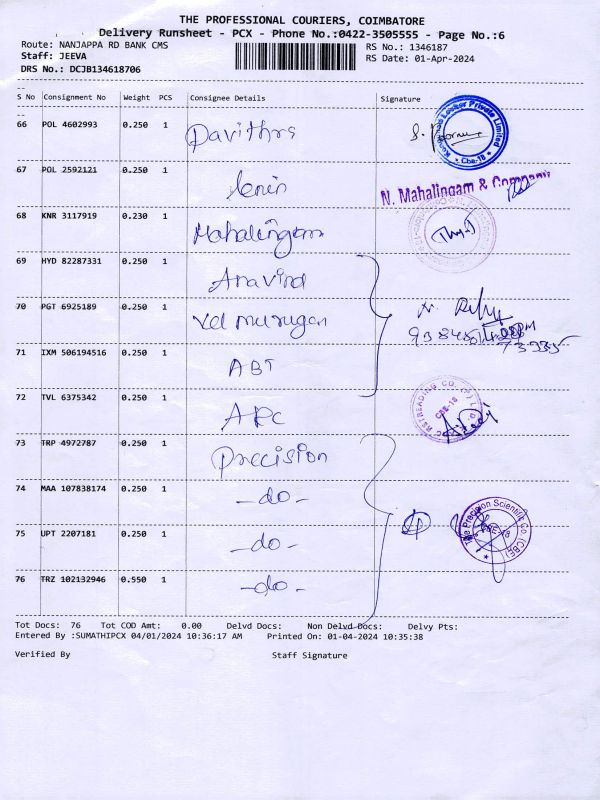 THE PROFESSIONAL COURIERS, COIMBATORE
Delivery Runsheet - PCX - Phone No.:0422-3505555 - Page No.:6
Route: NANJAPPA RD BANK CMS
RS No.: 1346187
Staff: JEEVA
RS Date: 01-Apr-2024
DRS No.: DCJB134618706
S No Consignment No Weight PCS Consignee Details Signature
66 POL 4602993 0.250 1 Pavithra
Locker Private Limited
Cbe-18
67 POL 2592121 0.250 1 lenin
N. Mahalingam & Company
68 KNR 3117919 0.230 1 Mahalingam
69 HYD 82287331 0.250 1 Aravind
70 PGT 6925189 0.250 1 Vel murugan
71 IXM 506194516 0.250 1 ABT
72 TVL 6375342 0.250 1 ARC
RETREADING CO. (P) L
CBE-18
73 TRP 4972787 0.250 1 Precision
74 MAA 107838174 0.250 1 -do-
75 UPT 2207181 0.250 1 -do-
The Precision Scientific Co. (CBE)
76 TRZ 102132946 0.550 1 -do-
Tot Docs: 76 Tot COD Amt: 0.00 Delvd Docs: Non Delvd Docs: Delvy Pts:
Entered By :SUMATHIPCX 04/01/2024 10:36:17 AM Printed On: 01-04-2024 10:35:38
Verified By Staff Signature